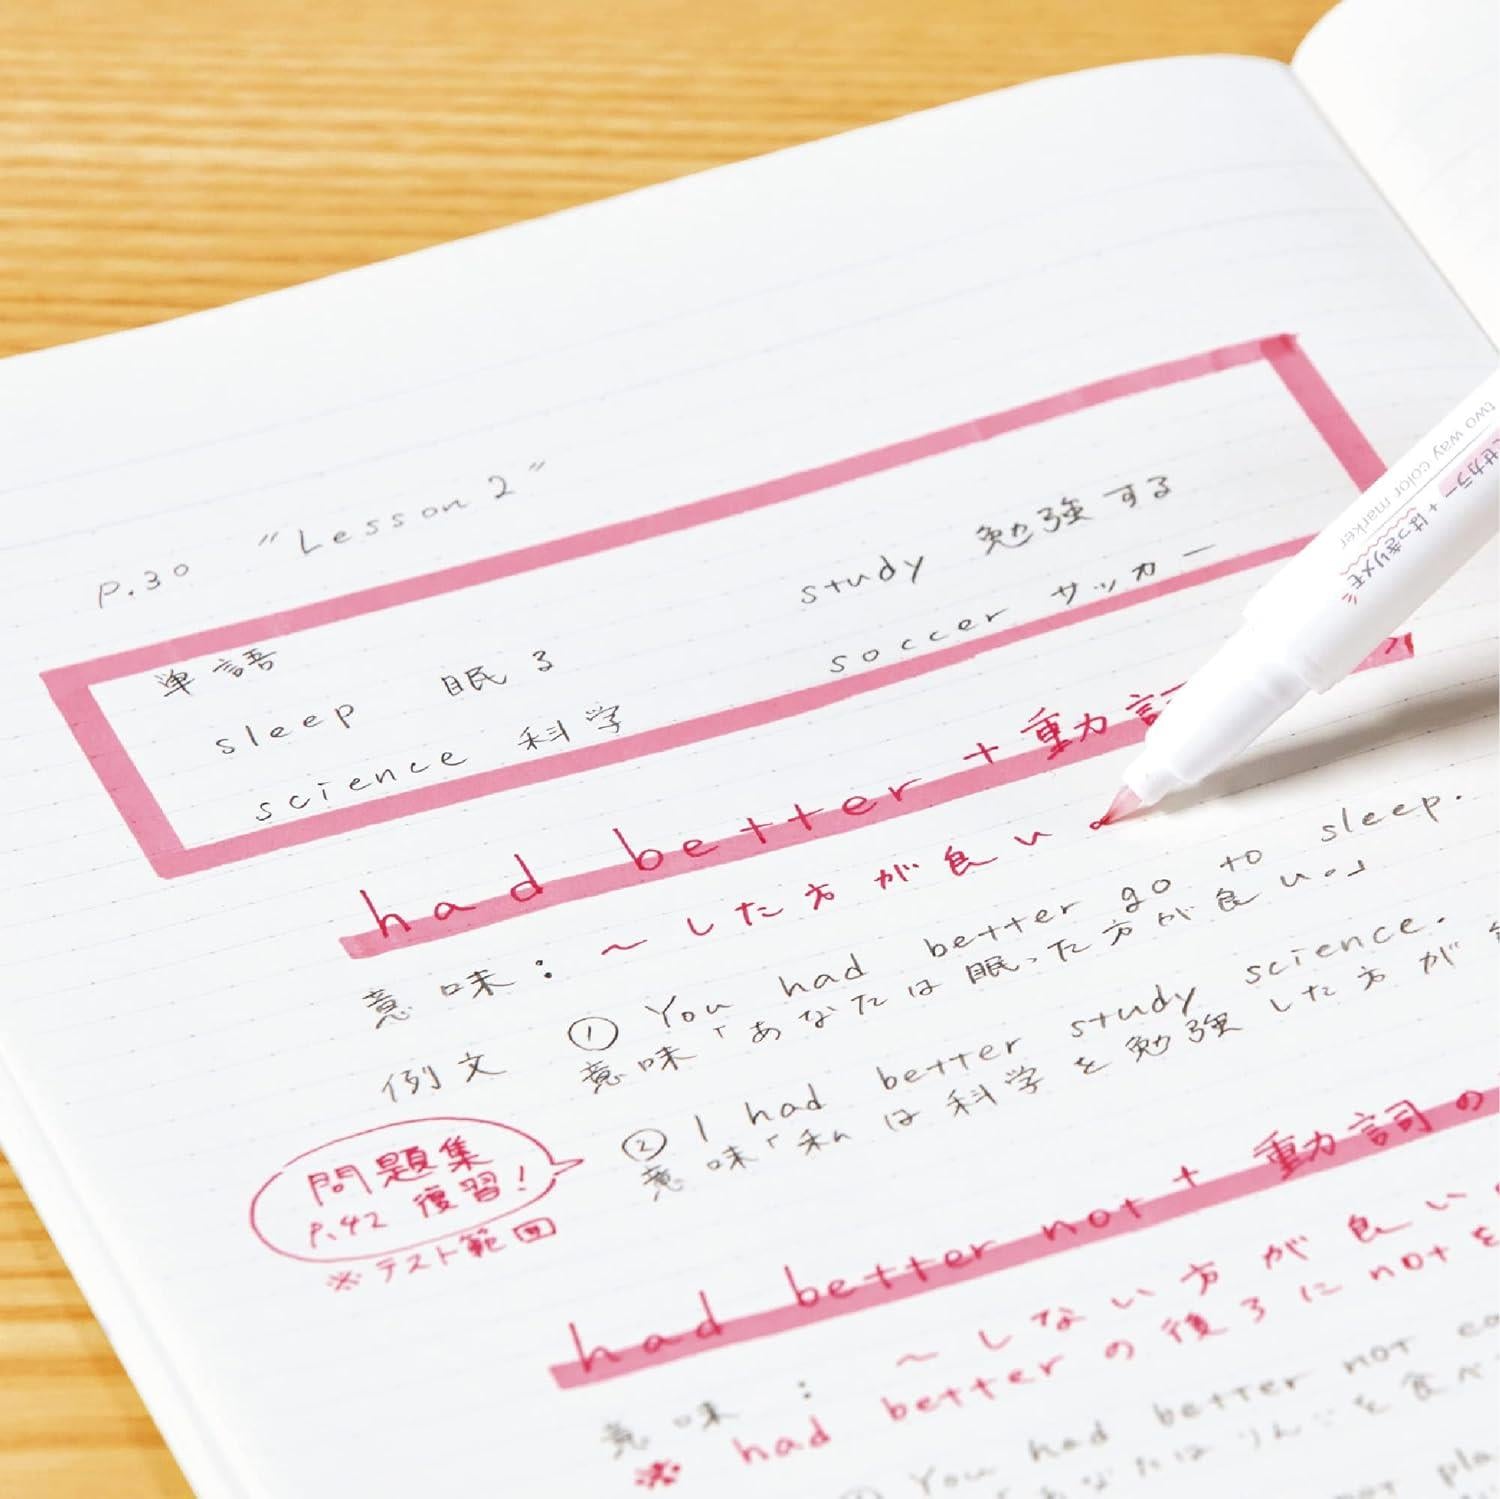 P.30 "Lesson 2"
単語
sleep 眠る
science 科学
study 勉強する
soccer サッカー
had better + 動詞
意味: 〜した方が良い。
例文 ① You had better go to sleep.
意味「あなたは眠った方が良い。」
② I had better study science.
意味「私は科学を勉強した方が
問題集
P.42 復習!
※テスト範囲
had better not + 動詞の
意味: 〜しない方が良い
※ had better の後ろに not を
You had better not
あなたはりんごを食べ
two way color marker
せカラー + はっきりメモ